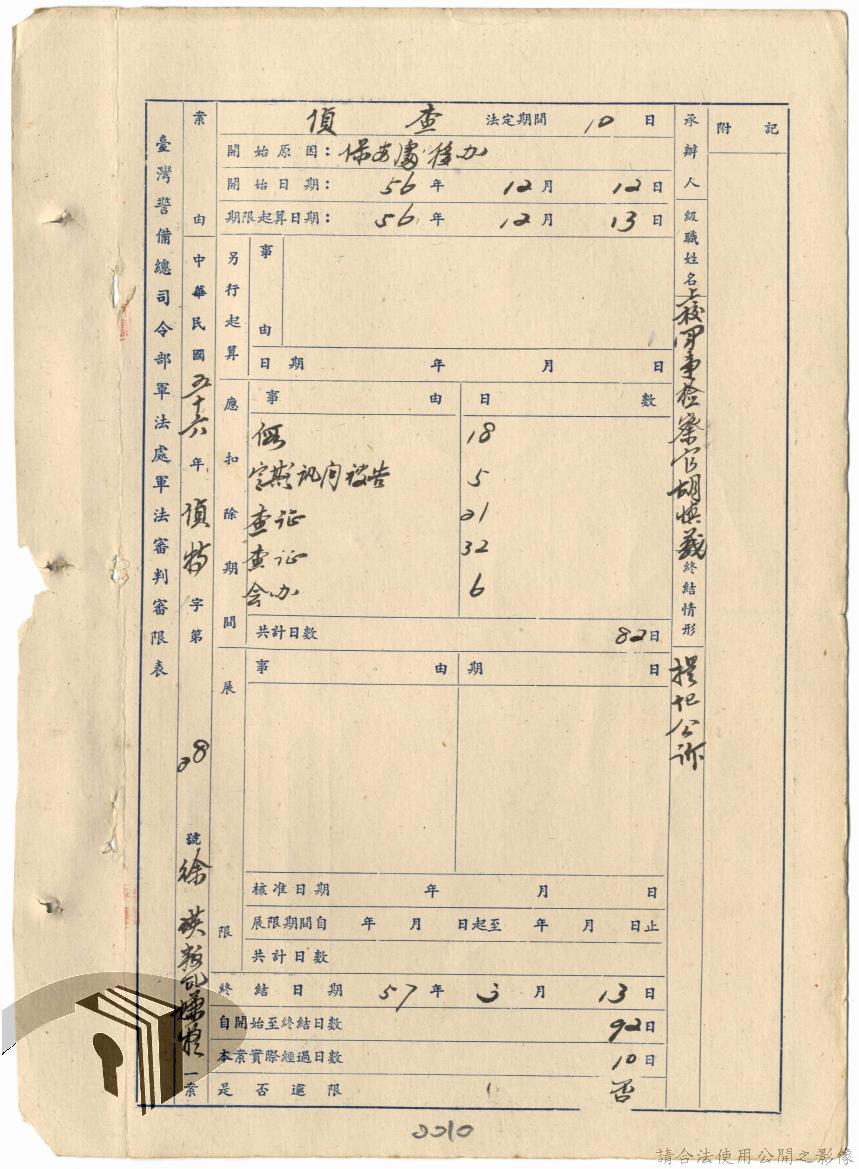 臺灣警備總司令部軍法處軍法審判審限表
案由 中華民國五十六年偵特字第28號徐瑛叛亂嫌疑一案
偵查 法定期間 10 日
開始原因：保安處移办
開始日期：56年12月12日
期限起算日期：56年12月13日
另行起算
事由
日期 年 月 日
應扣除期間
事由 日數
18
定期訊问被告 5
查证 21
查证 32
会办 6
共計日數 82日
展限
事由 期日
核准日期 年 月 日
展限期間自 年 月 日起至 年 月 日止
共計日數
終結日期 57年3月13日
自開始至終結日數 92日
本案實際經過日數 10日
是否逾限 否
承辦人級職姓名 上校軍事检察官胡慎義
終結情形 提起公訴
附記
2010
請合法使用公開之影像